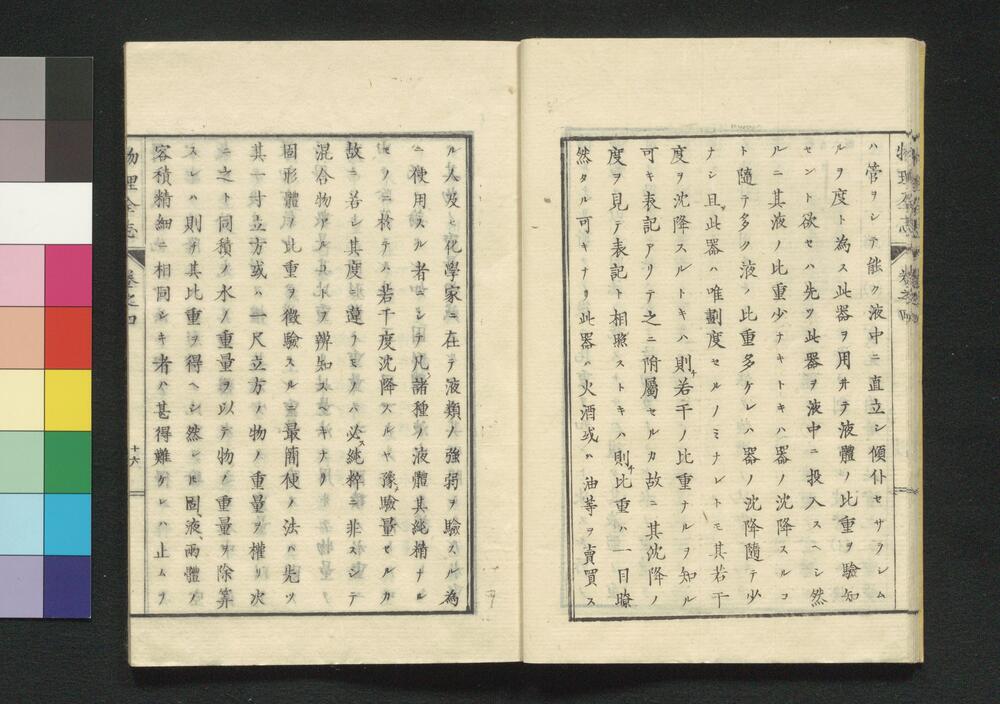 物理全志 卷之四
ハ管ヲシテ能ク液中ニ直立シ傾仆セサラシム
ルヲ度ト為ス此器ヲ用井テ液體ノ比重ヲ驗知
セント欲セハ先ツ此器ヲ液中ニ投入スヘシ然
ルニ其液ノ比重少ナキトキハ器ノ沈降スルコ
ト隨テ多ク液ノ比重多ケレハ器ノ沈降隨テ少
ナシ且此器ハ唯劃度セルノミナレトモ其若干
度ヲ沈降スルトキハ則チ若干ノ比重ナルヲ知ル
可キ表記アリテ之ニ附屬セルカ故ニ其沈降ノ
度ヲ見テ表記ト相照ストキハ則チ比重ハ一目瞭
然タル可キナリ此器ハ火酒或ハ油等ヲ賣買ス
ル人及ヒ化學家ニ在テ液類ノ強弱ヲ驗スル為
ニ使用スル者ニシテ凡ソ諸種ノ液體其純精ナル
モノニ於テハ若干度沈降スルヤ豫メ驗量セルカ
故ニ若シ其度ニ違フモノハ必ス純粹ニ非スシテ
混合物アルコトヲ辨知スヘキナリ
固形體ノ比重ヲ徵驗スルニ最簡便ノ法ハ先ツ
其一寸立方或ハ一尺立方ノ物ノ重量ヲ權リ次
ニ之ト同積ノ水ノ重量ヲ以テ物ノ重量ヲ除算
スレハ則チ其比重ヲ得ヘシ然レトモ固、液、兩體ノ
容積精細ニ相同シキ者ハ甚得難ケレハ止ムヲ
物理全志 卷之四 十六